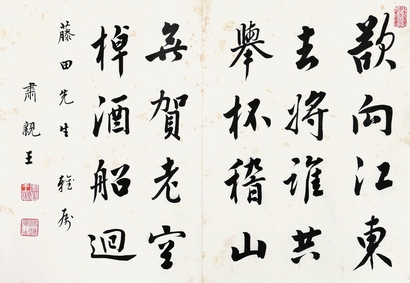 欲向江東
去將誰共
舉杯稽山
無賀老空
棹酒船迴
藤田先生雅屬
肅親王